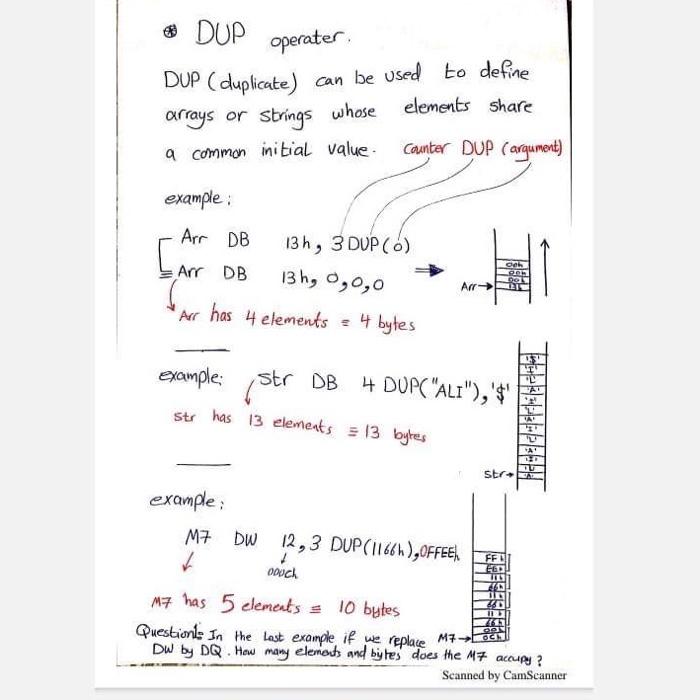 * DUP operater.
DUP (duplicate) can be used to define
arrays or strings whose elements share
a common initial value. Counter DUP (argument)
example:
Arr DB 13h, 3 DUP(0)
≡ Arr DB 13h, 0,0,0
Arr has 4 elements ≡ 4 bytes
00h
00h
00h
13h
Arr→
example: Str DB 4 DUP("ALI"),'$'
str has 13 elements ≡ 13 bytes
'$'
'I'
'L'
'A'
'I'
'L'
'A'
'I'
'L'
'A'
'I'
'L'
'A'
Str→
example:
M7 DW 12, 3 DUP(1166h), 0FFEEh
000ch
M7 has 5 elements ≡ 10 bytes
FFh
EEh
11h
66h
11h
66h
11h
66h
00h
0Ch
M7→
Question1: In the last example if we replace
DW by DQ. How many elements and bytes does the M7 accupy?
Scanned by CamScanner